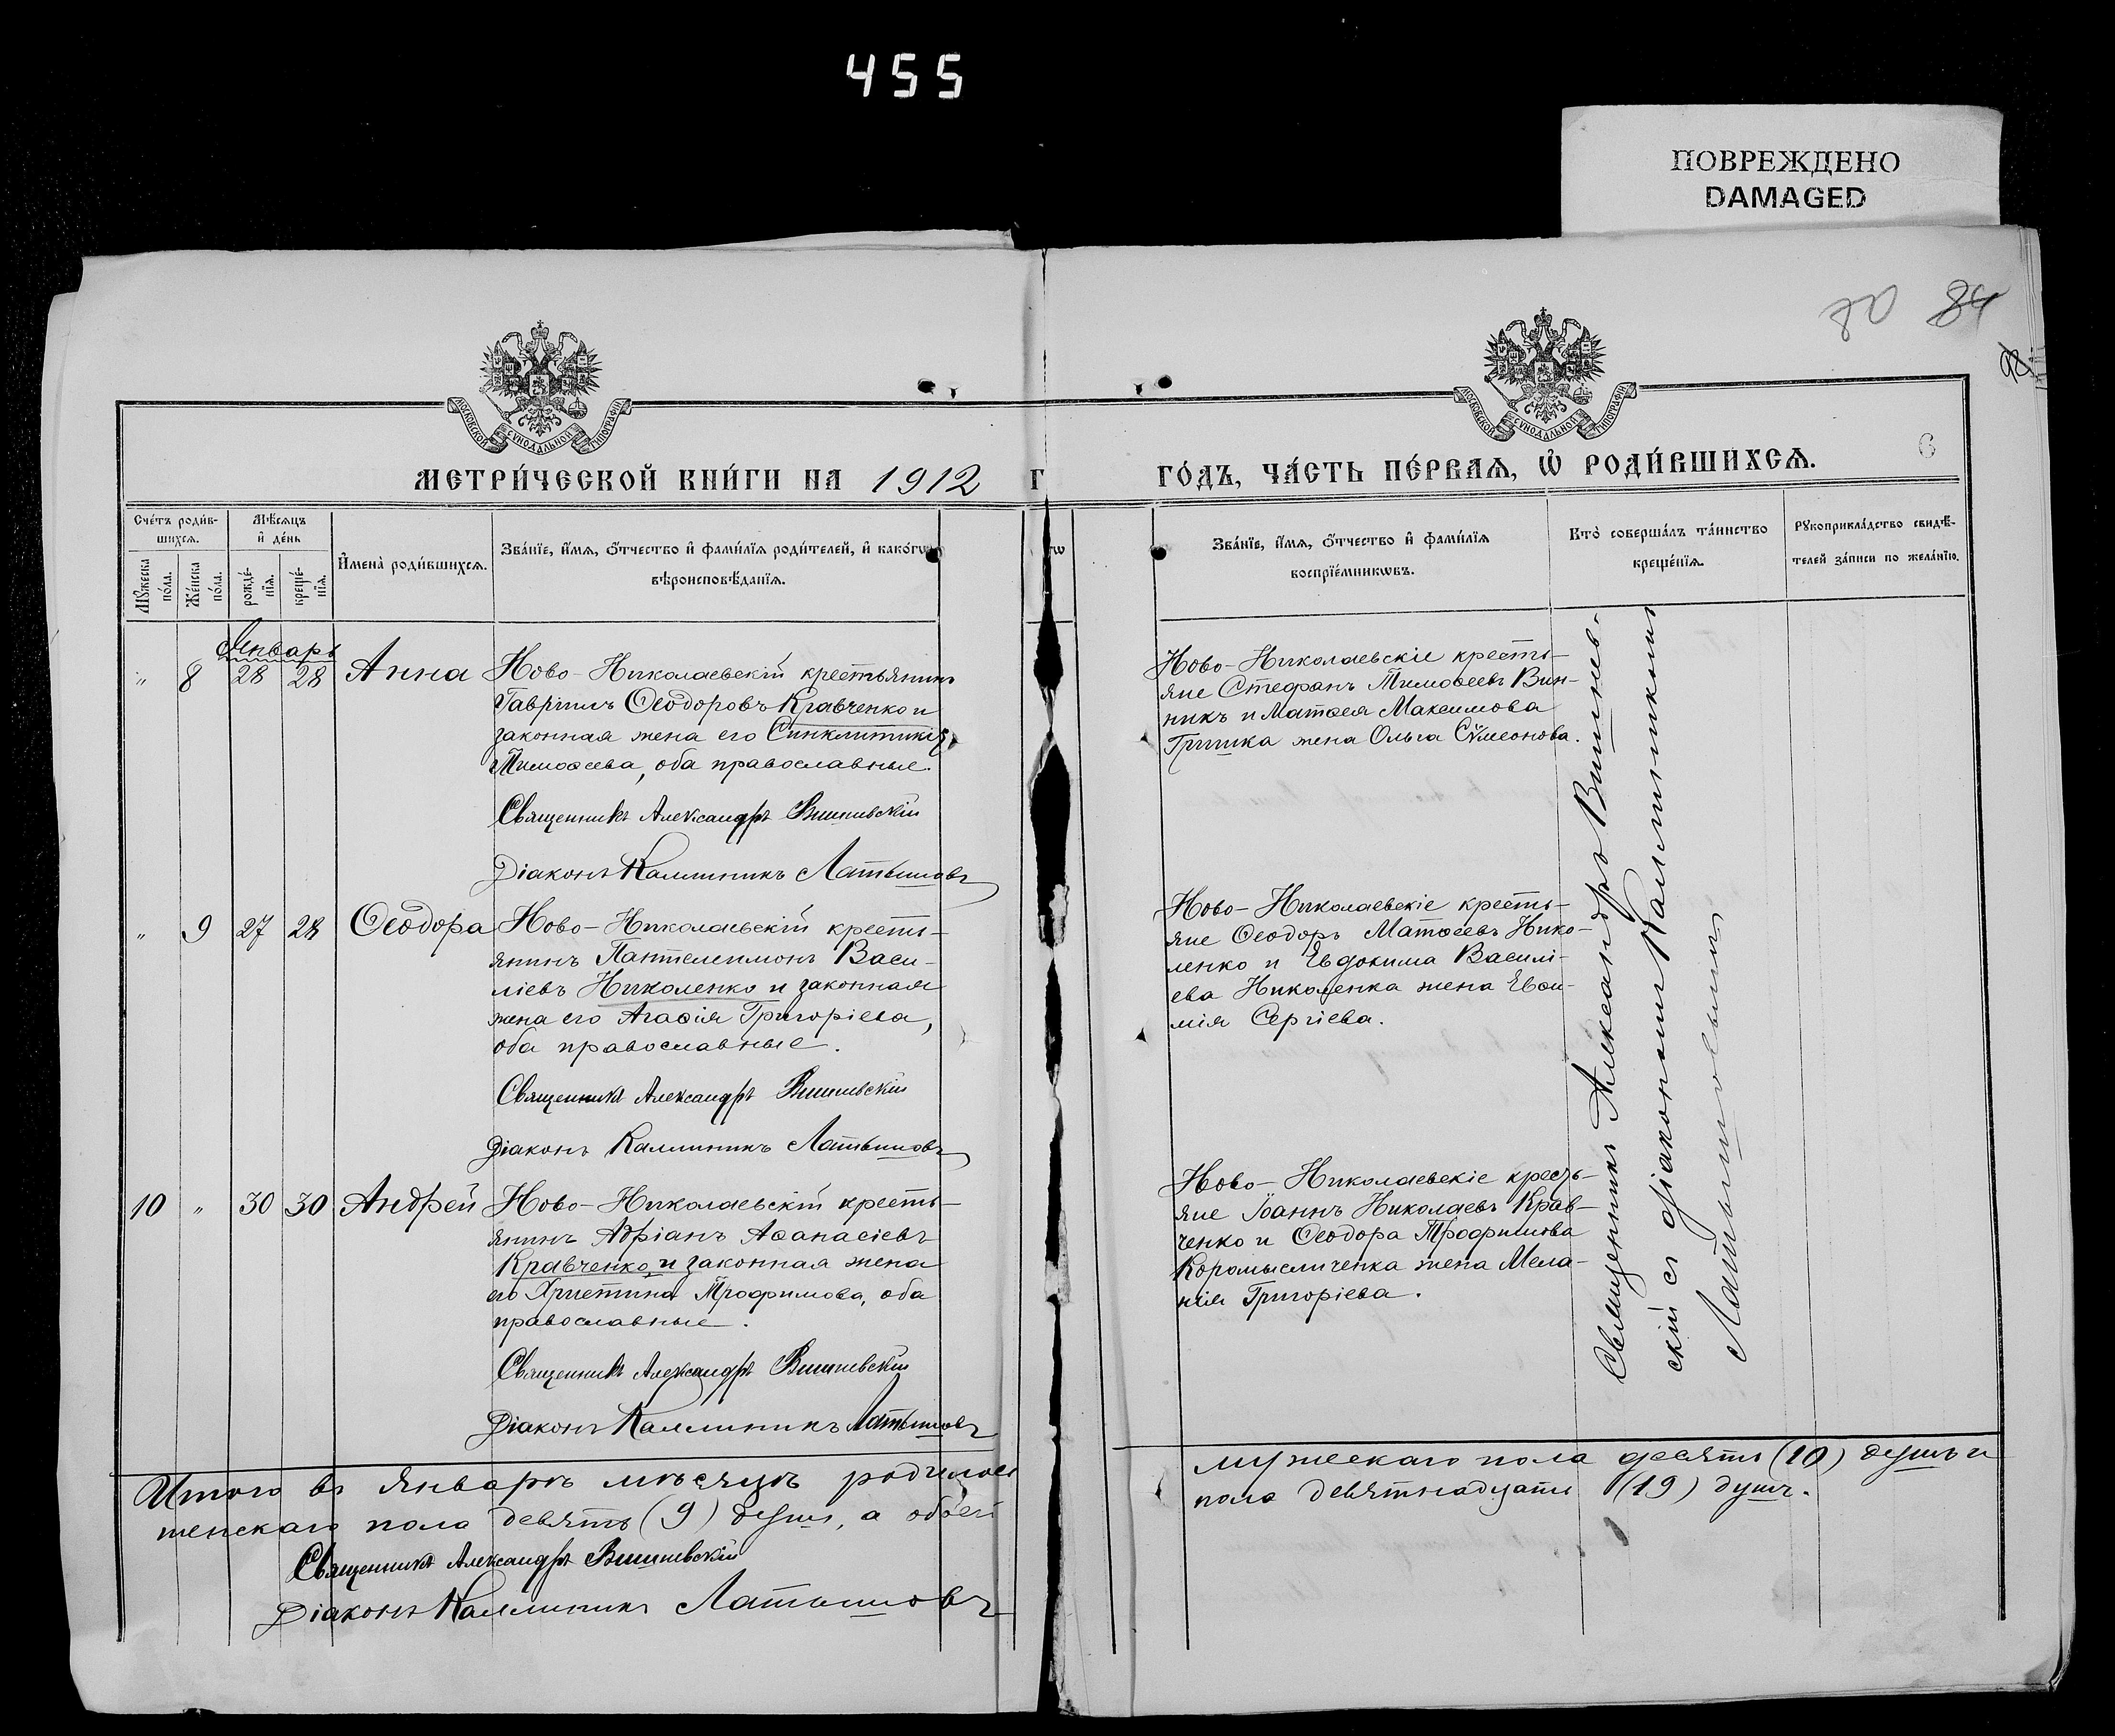 455
ПОВРЕЖДЕНО
DAMAGED
80 84
МОСКОВСКОЙ СѴНОДАЛЬНОЙ ТИПОГРАФІИ
МОСКОВСКОЙ СѴНОДАЛЬНОЙ ТИПОГРАФІИ
6
МЕТРИ́ЧЕСКОЙ КНИ́ГИ НА 1912 Г
ГО́ДЪ, ЧА́СТЬ ПЕ́РВАѦ, Ѡ҆ РОДИ́ВШИХСѦ.
Сче́тъ роди́в-
шихсѧ.
Мꙋ́жеска по́ла.
Же́нска по́ла.
Мѣ́сѧцъ и҆ де́нь
рожде́-нїѧ.
креще́-нїѧ.
И҆мена̀ роди́вшихсѧ.
Зва́нїе, и҆́мѧ, ѻ҆́тчество и҆ фами́лїѧ роди́телей, и҆ како́гѡ
вѣроисповѣ́данїѧ.
Зва́нїе, и҆́мѧ, ѻ҆́тчество и҆ фами́лїѧ
воспрїе́мникѡвъ.
Кто̀ соверша́лъ та́инство
креще́нїѧ.
Рꙋкоприкла́дство свидѣ́-
телей за́писи по жела́нїю.
Январь
" 8 28 28 Анна
Ново-Николаевскій крестьянинъ
Гавріилъ Ѳеодоровъ Кравченко и
законная жена его Синклитикія
Тимоѳеева, оба православные.
Священникъ Александръ Вишневскій
Діаконъ Каллиникъ Латышовъ
Ново-Николаевскіе кресть-
яне Стефанъ Тимоѳеевъ Вин-
никъ и Матѳея Максимова
Гришка жена Ольга Сѵмеонова.
" 9 27 28 Ѳеодора
Ново-Николаевскій кресть-
янинъ Пантелеимонъ Васи-
ліевъ Николенко и законная
жена его Агаѳія Григоріева,
оба православные.
Священникъ Александръ Вишневскій
Діаконъ Каллиникъ Латышовъ
Ново-Николаевскіе кресть-
яне Ѳеодоръ Матѳеевъ Нико-
ленко и Евдокима Василі-
ева Николенка жена Евѳи-
мія Сергіева.
10 " 30 30 Андрей
Ново-Николаевскій кресть-
янинъ Адріанъ Аѳанасіевъ
Кравченко и законная жена
его Христина Трофимова, оба
православные.
Священникъ Александръ Вишневскій
Діаконъ Каллиникъ Латышовъ
Ново-Николаевскіе кресть-
яне Іоаннъ Николаевъ Крав-
ченко и Ѳеодора Трофимова
Коромысличенка жена Мела-
нія Григоріева.
Священникъ Александръ Вишнев-
скій съ діакономъ Каллиникомъ
Латышовымъ
Итого въ Январѣ мѣсяцѣ родилось
мужескаго пола десять (10) душъ и
женскаго пола девять (9) душъ, а обоего
пола девятнадцать (19) душъ.
Священникъ Александръ Вишневскій
Діаконъ Каллиникъ Латышовъ